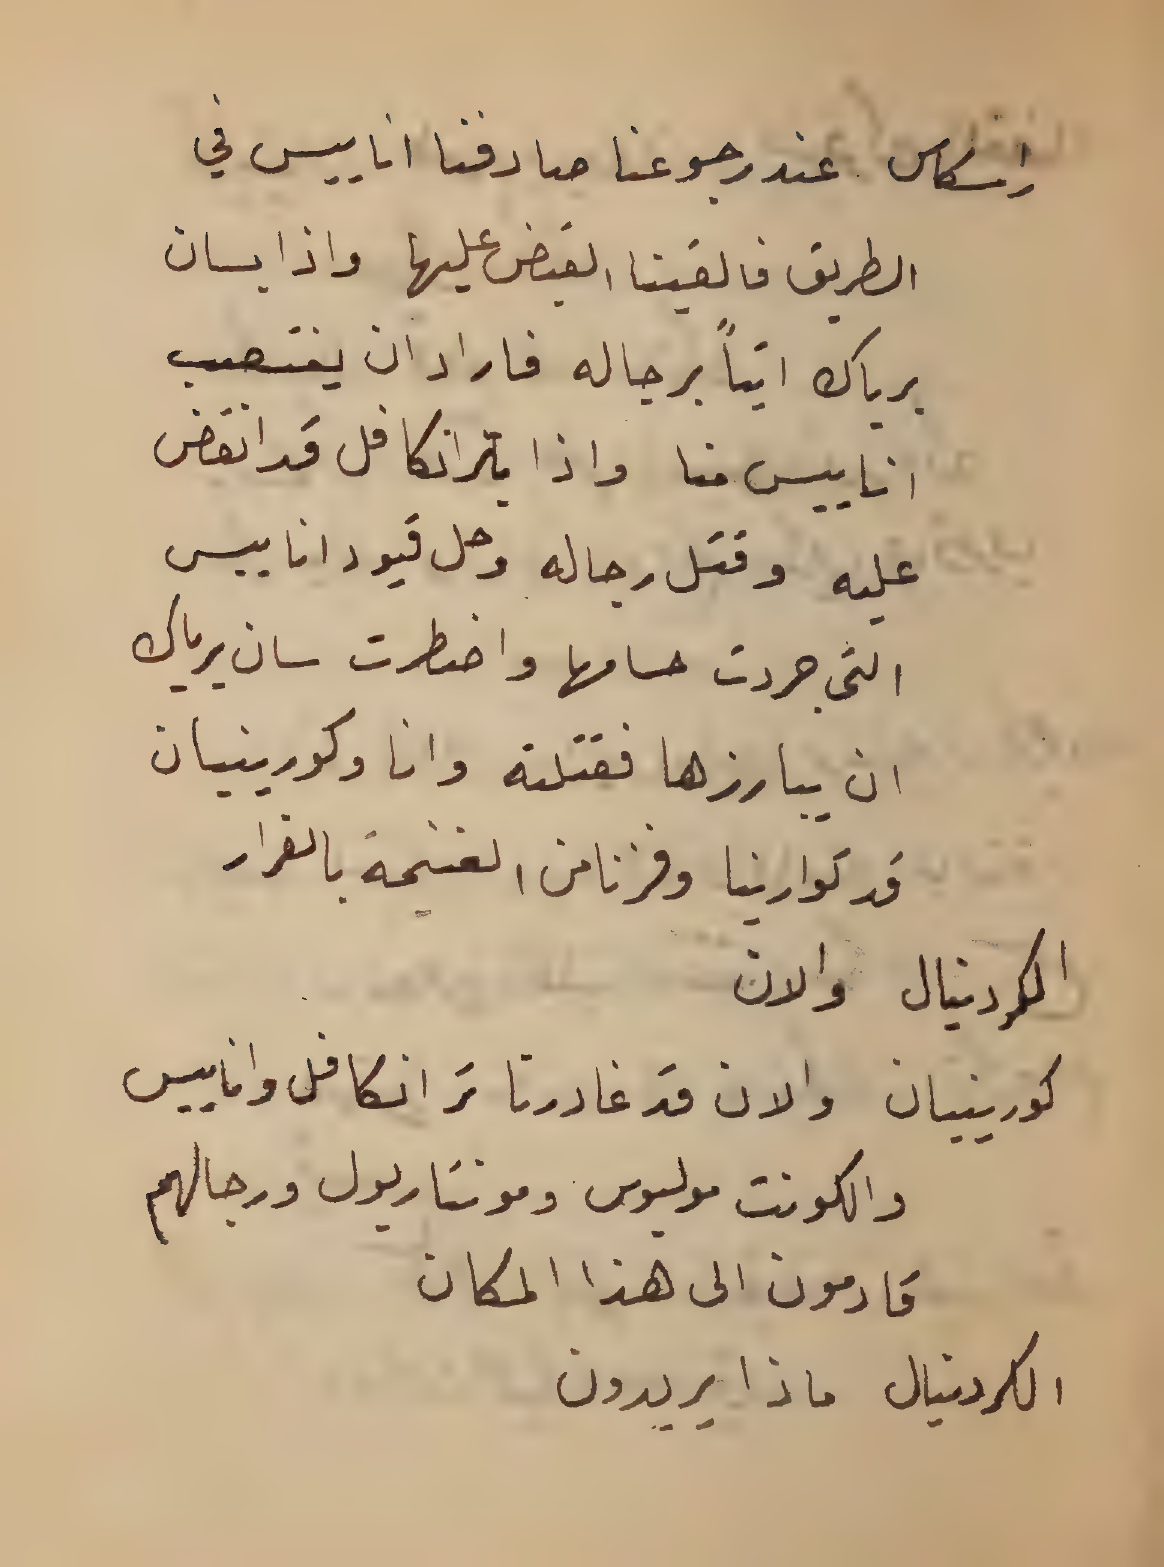 راسكاس عند رجوعنا صادفنا اناييس في
الطريق فالقينا القبض عليها واذا بسان
برياك اتياً برجاله فاراد ان يغتصب
اناييس منا واذا بترانكافل قد انقض
عليه وقتل رجاله وحل قيود اناييس
التي جردت حسامها واضطرت سان برياك
ان يبارزها فقتلته وانا وكورينيان
قد توارينا وفزنا من الغنيمة بالفرار
الكردينال والان
كورينيان والان قد غادرنا ترانكافل واناييس
والكونت موليوس ومونتاريول ورجالهم
قادمون الى هذا المكان
الكردينال ماذا يريدون